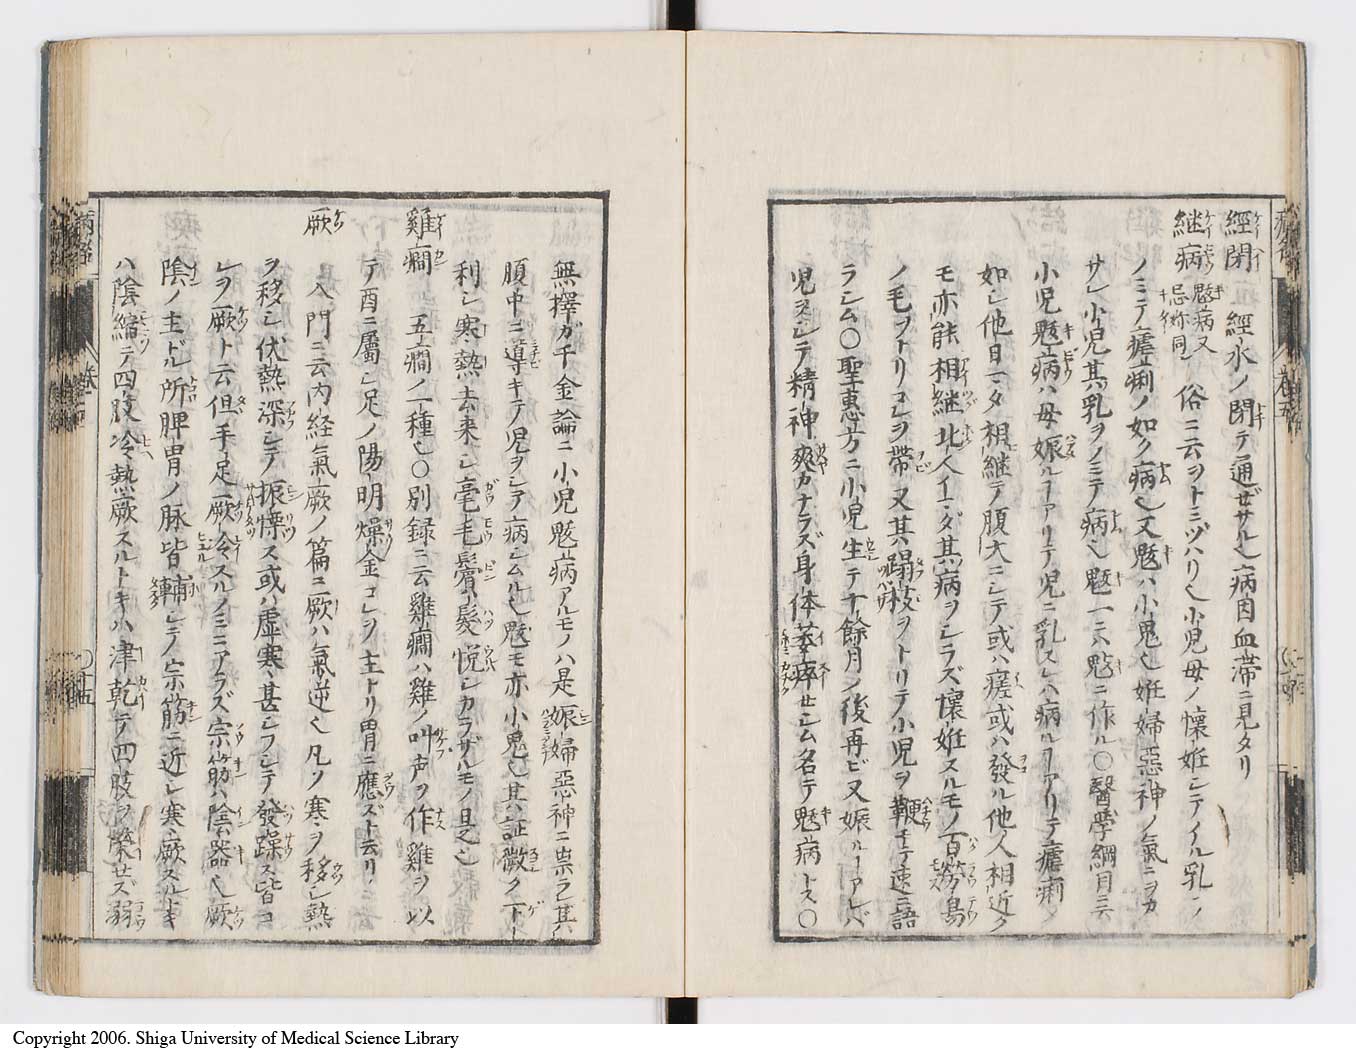 經閉 經水ノ閉テ通ゼザル也病因血滞ニ見タリ
継病 鬾病又忌妳同シ 俗ニ云ヲトミヅハリ也小児母ノ懐妊シテイル乳ヲ
ノミテ瘧痢ノ如ク病也又鬾ハ小鬼也妊婦惡神ノ氣ニヲカ
サレ小児其乳ヲノミテ病也鬾一ニハ鬾ニ作ル〇醫學綱目ニ云
小児鬾病ハ母娠ルヿアリテ児ニ乳スレハ病ルヿアリテ瘧痢ノ
如シ他日マタ相継テ腹大ニシテ或ハ瘥或ハ發ル他人相近ク
モ亦能相継北人イマダ其病ヲシラズ懐妊スルモノ百労鳥
ノ毛ヲトリコレヲ帯又其蹋枝ヲトリテ小児ヲ鞭モテ速ニ語
ラシム〇聖惠方ニ小児生テ十餘月ノ後再ビ又娠ルヿアレバ
児ヲシテ精神爽カナラズ身体萎瘁セシム名テ鬾病トス〇
無擇ガ千金論ニ小児鬾病アルモノハ是娠婦惡神ニ祟ラ其
腹中ニ導キテ児ヲシテ病シムル也鬾モ亦小鬼也其証微ク下
利シ寒熱去来シ毫毛鬢髮悦シカラザルモノ是也
雞癇 五癇ノ一種也〇別録ニ云雞癇ハ雞ノ叫声ヲ作雞ヲ以
テノ酉ニ屬シ足ノ陽明燥金コレヲ主トリ胃ニ應ズト云リ
厥 入門ニ云内経氣厥ノ篇ニ厥ハ氣逆也凡ソ寒ヲ移シ熱
ヲ移シ伏熱深シテ振慄ス或ハ虚寒甚シフシテ發躁ス皆コ
レヲ厥ト云但手足厥冷スルノミニアラズ宗筋ハ陰器也厥
陰ノ主ドル所脾胃ノ脉皆輔シテ宗筋ニ近シ寒厥スルトキ
ハ陰縮テ四肢冷熱厥スルトキハ津乾テ四肢ヲ榮セズ弱
Copyright 2006. Shiga University of Medical Science Library